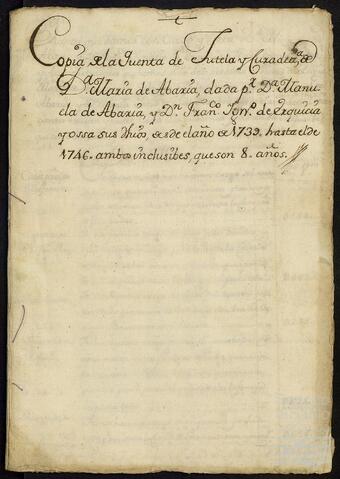 Copia de la Quenta de Tutela y Curadᵃ, de
Dᵃ Maria de Abaria, dada pʳ. Dᵃ Manu
ela de Abaria, y Dⁿ. Franᶜᵒ Ignᵒ. de Erquicia
y ossa sus hijos, desde el año de 1739. hasta el de
1746. ambos inclusibes, que son 8. años.